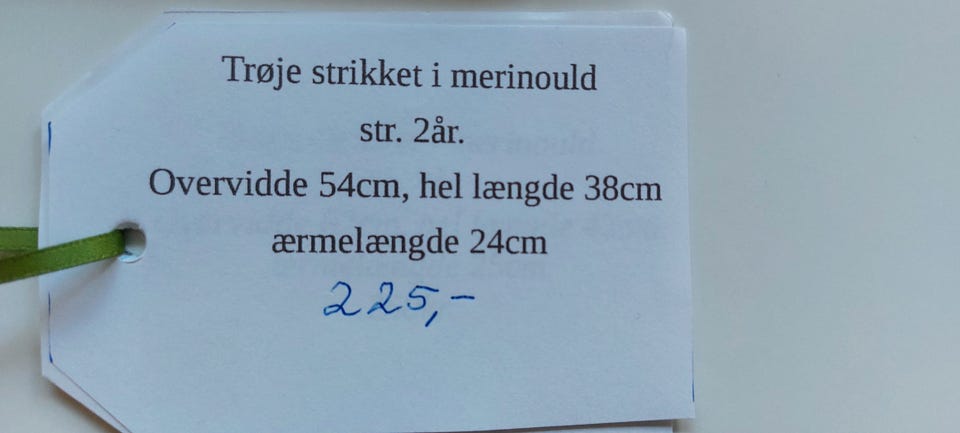 Trøje strikket i merinould
str. 2år.
Overvidde 54cm, hel længde 38cm
ærmelængde 24cm
225,-